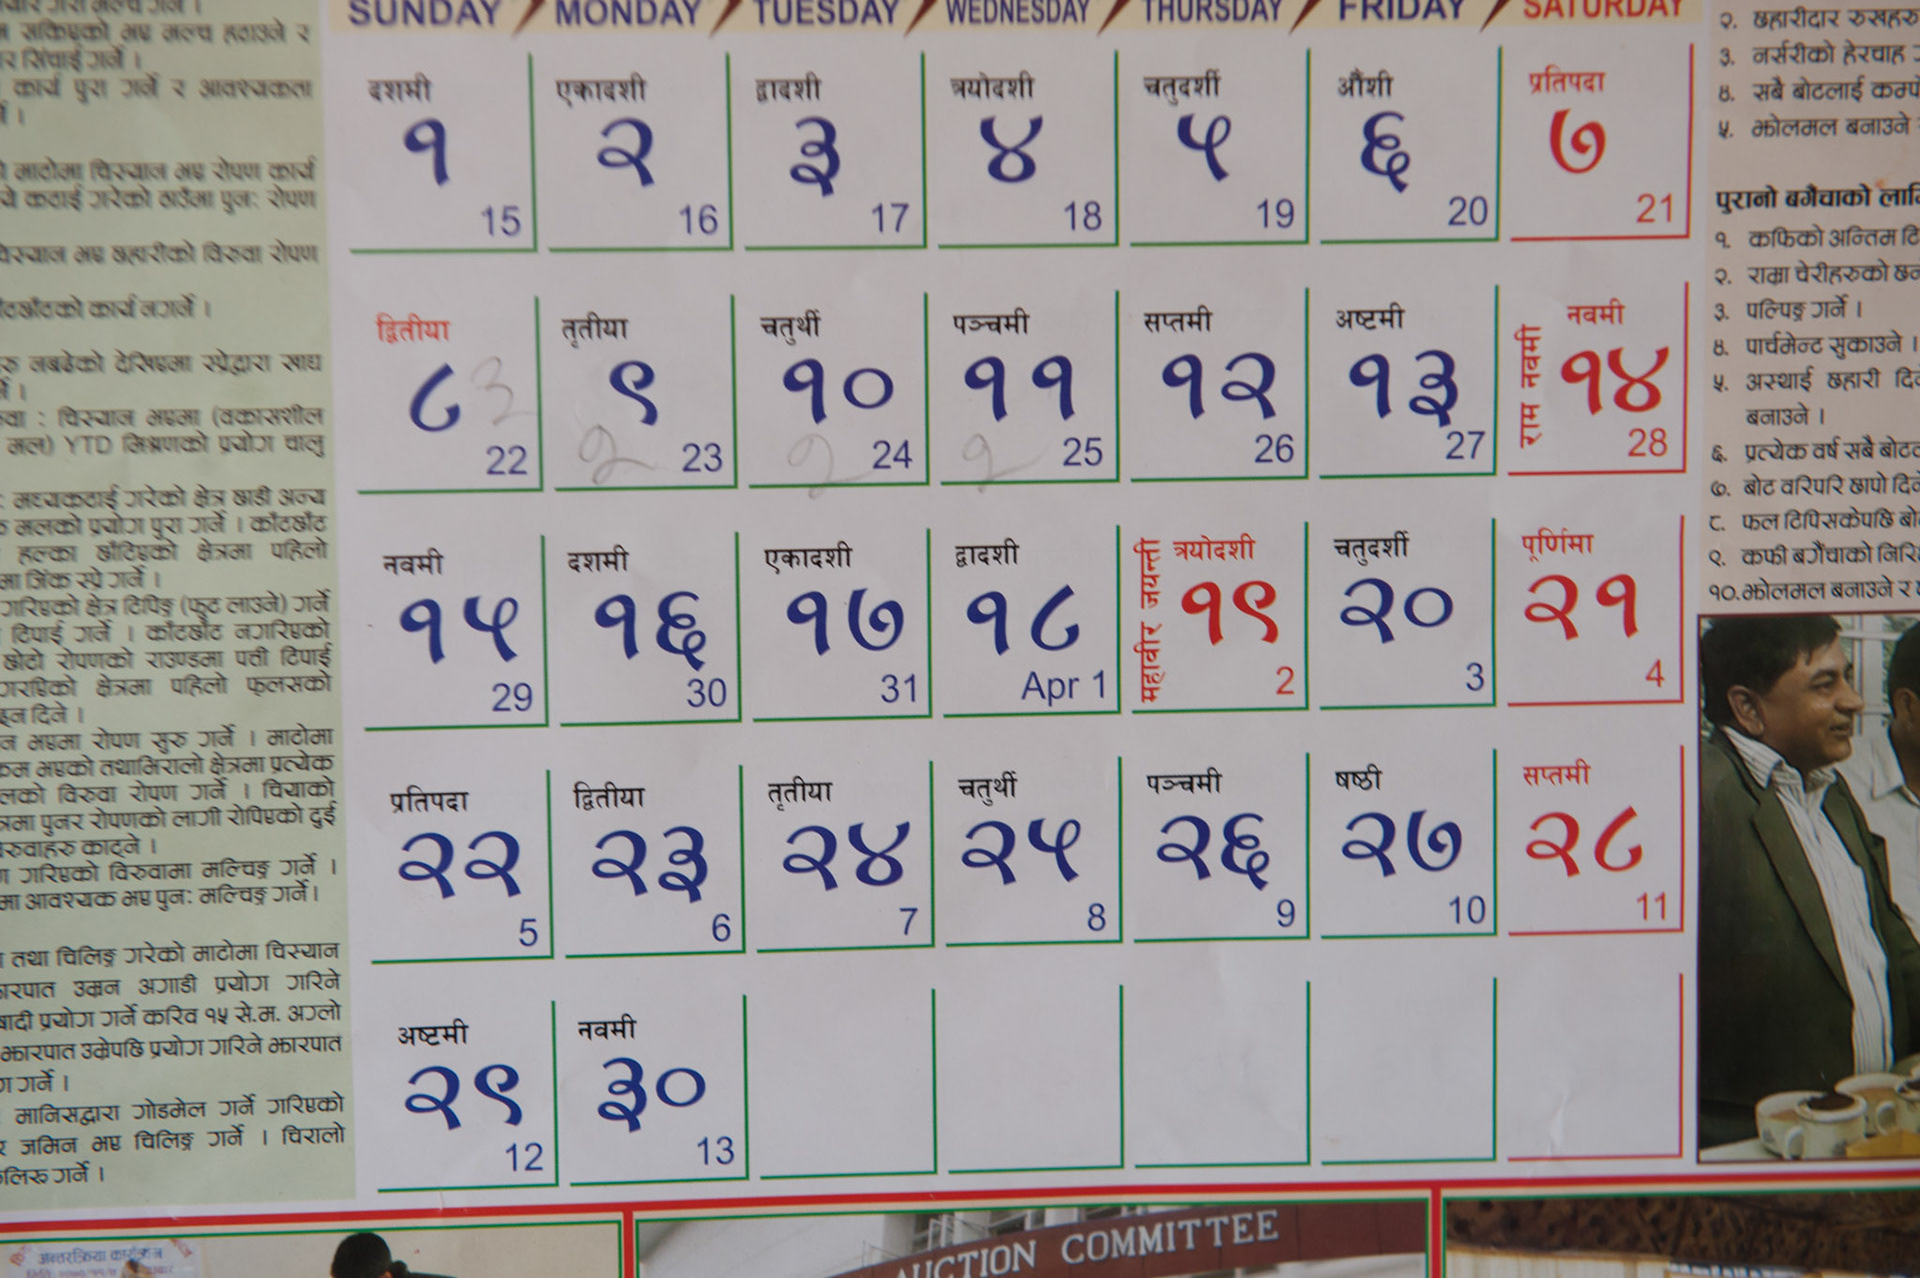 SUNDAY MONDAY TUESDAY WEDNESDAY THURSDAY FRIDAY SATURDAY
दशमी एकादशी द्वादशी त्रयोदशी चतुदर्शी औंशी प्रतिपदा
१ २ ३ ४ ५ ६ ७
15 16 17 18 19 20 21
द्वितीया तृतीया चतुर्थी पञ्चमी सप्तमी अष्टमी राम नवमी नवमी
८ ३ ९ १० ११ १२ १३ १४
22 २ 23 २ 24 २ 25 26 27 28
नवमी दशमी एकादशी द्वादशी महावीर जयन्ती त्रयोदशी चतुदर्शी पूर्णिमा
१५ १६ १७ १८ १९ २० २१
29 30 31 Apr 1 2 3 4
प्रतिपदा द्वितीया तृतीया चतुर्थी पञ्चमी षष्ठी सप्तमी
२२ २३ २४ २५ २६ २७ २८
5 6 7 8 9 10 11
अष्टमी नवमी
२९ ३०
12 13
सकिएको भए मल्च हटाउने र
सिंचाई गर्ने ।
कार्य पुरा गर्ने र आवश्यकता
माटोमा चिस्यान भए रोपण कार्य
कटाई गरेको ठाउँमा पुनः रोपण
भए छहारीको विरुवा रोपण
कार्य नगर्ने ।
नबढेको देखिएमा स्प्रेद्वारा साथ
: चिस्यान भएमा (वकासशील
मल) YTD मिश्रणको प्रयोग चालु
मध्यकटाई गरेको क्षेत्र छाडी अन्य
मलको प्रयोग पुरा गर्ने । काँटछाँट
हल्का छाँटिएको क्षेत्रमा पहिलो
जिंक स्प्रे गर्ने ।
गरिएको क्षेत्र टिपिङ्ग (फुट लाउने) गर्ने
टिपाई गर्ने । काँटछाँट नगरिएको
छोटो रोपणको राउण्डमा पत्ती टिपाई
क्षेत्रमा पहिलो फ्लसको
दिने ।
भएमा रोपण सुरु गर्ने । माटोमा
भएको तथाभिरालो क्षेत्रमा प्रत्येक
विरुवा रोपण गर्ने । चियाको
पुनर रोपणको लागी रोपिएको दुई
काट्ने ।
गरिएको विरुवामा मल्चिङ्ग गर्ने ।
आवश्यक भए पुनः मल्चिङ्ग गर्ने।
तथा चिलिङ्ग गरेको माटोमा चिस्यान
उम्रन अगाडी प्रयोग गरिने
प्रयोग गर्ने करिव १५ से.म. अग्लो
झारपात उम्रेपछि प्रयोग गरिने झारपात
गर्ने ।
मानिसद्वारा गोडमेल गर्ने गरिएको
जमिन भए चिलिङ्ग गर्ने । चिरालो
गर्ने ।
२. छहारीदार रुखहरु
३. नर्सरीको हेरचाह
४. सबै बोटलाई
५. झोलमल बनाउने
पुरानो बगैचाको
१. कफिको अन्तिम
२. राम्रा चेरीहरुको
३. पल्पिङ्ग गर्ने ।
४. पार्चमेन्ट सुकाउने ।
५. अस्थाई छहारी
बनाउने ।
६. प्रत्येक वर्ष सबै
७. बोट वरिपरि छापो
८. फल टिपिसकेपछि
९. कफी बगैंचाको
१०. झोलमल बनाउने र
अन्तरक्रिया कार्यक्रम
AUCTION COMMITTEE